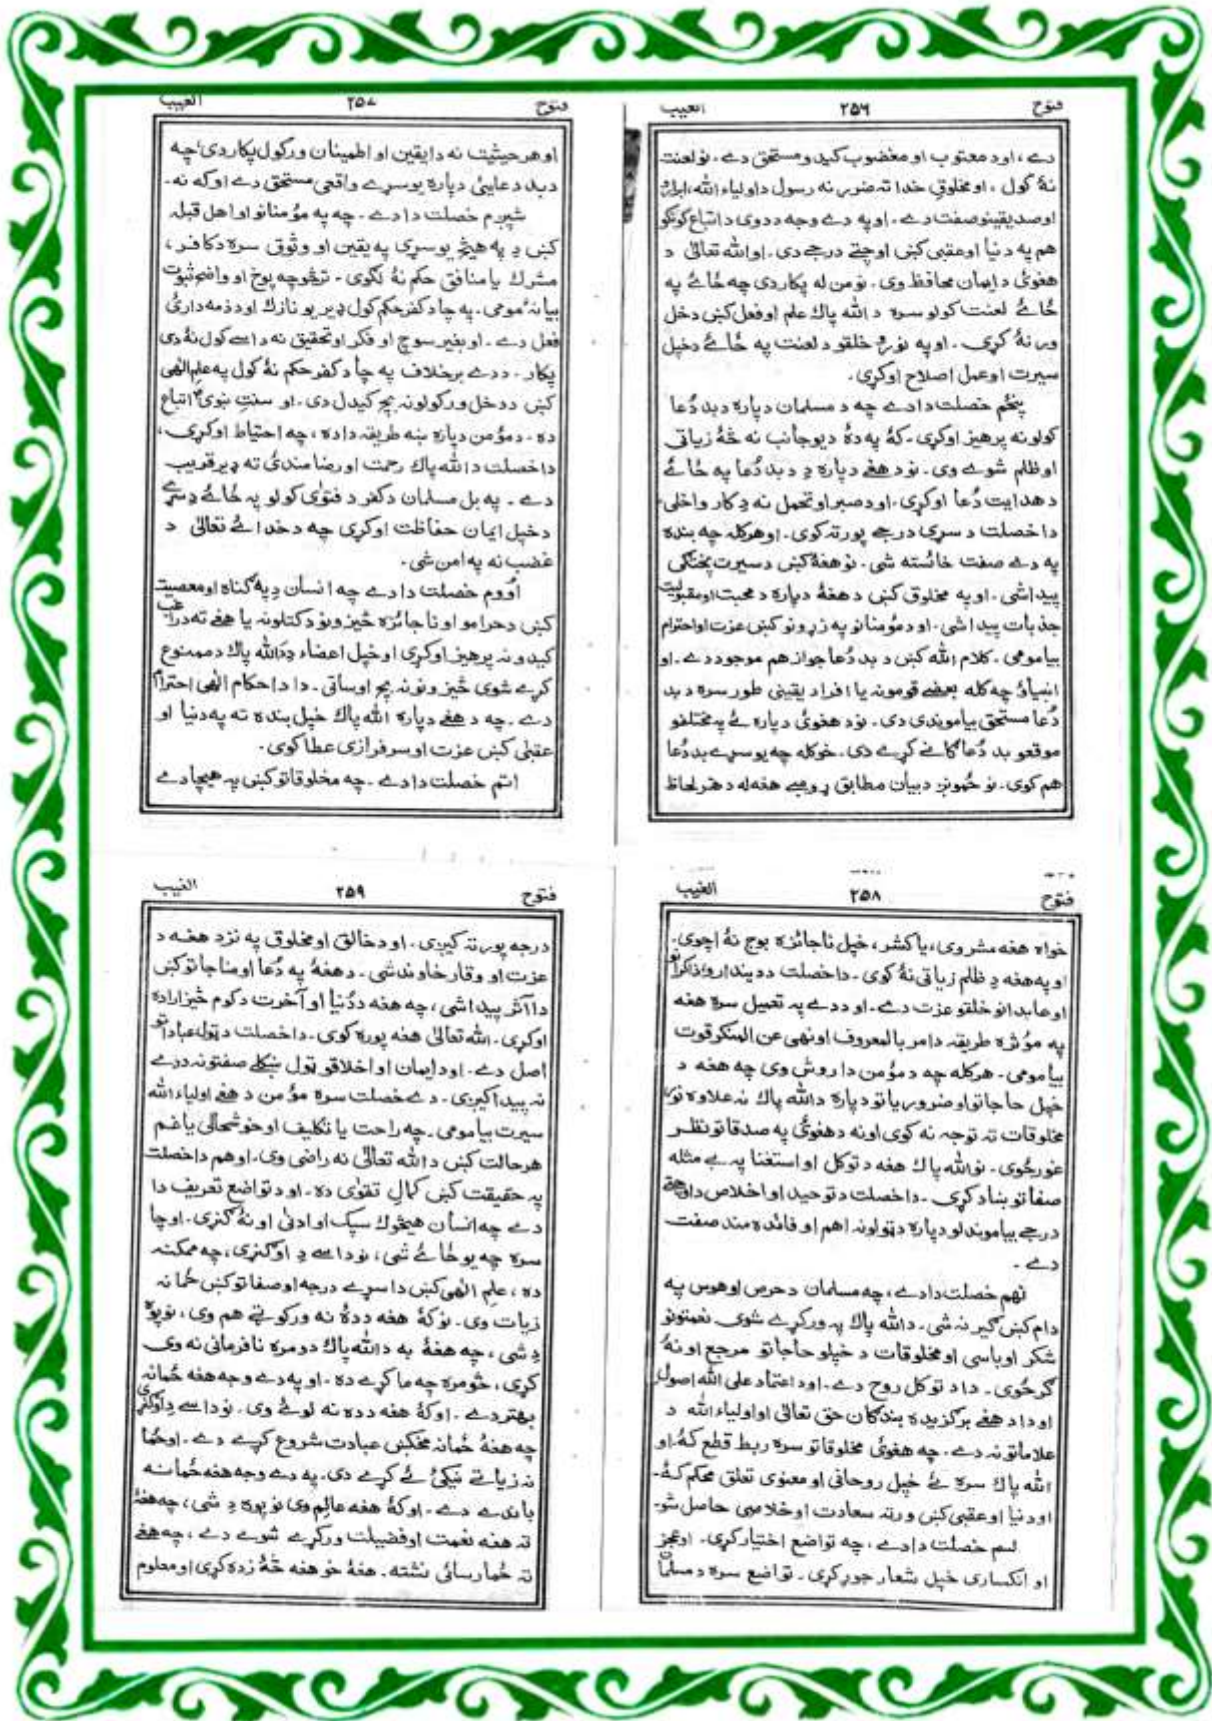 فتوح ۲۵۶ الغيب
دے، اود معتوب او مغضوب کېدو مستحق دے. نو لعنت
نۀ کول، او مخلوقِ خدا ته ضرر نه رسول د اولياء الله، ابرارو
او صديقينو صفت دے. او په دے وجه د دوی د اتباع کونکو
هم په دنيا او عقبى کښی اوچتے درجے دی. او الله تعالى د
هغوئ د ايمان محافظ وی. نو من له پکار دی چه ځائے په
ځائے لعنت کولو سره د الله پاك علم او فعل کښی دخل
ورنۀ کړی. او په نورو خلقو د لعنت په ځائے د خپل
سيرت او عمل اصلاح اوکړی.
پنځم خصلت دا دے چه د مسلمان دپاره د بد دُعا
کولو نه پرهيز اوکړی. کۀ په دۀ د يو جانب نه څۀ زياتی
او ظلم شوے وی. نو د هغے دپاره دِ د بد دُعا په ځائے
د هدايت دُعا اوکړی، او د صبر او تحمل نه دِ کار واخلی.
دا خصلت د سړی درجے پورته کوی. او هرکله چه بنده
په دے صفت خائسته شی. نو هغۀ کښی د سيرت پختګی
پيدا شی. او په مخلوق کښی د هغۀ دپاره د محبت او مقبوليت
جذبات پيدا شی. او د مؤمنانو په زړونو کښی عزت او احترام
بيامومی. کلام الله کښی د بد دُعا جواز هم موجود دے. او
انبياؤ چه کله بعضے قومونه يا افراد يقينی طور سره د بد
دُعا مستحق بياموندی دی. نو د هغوئ دپاره ئے په مختلفو
موقعو بد دُعاګانے کړے دی. خو کله چه يو سړے بد دُعا
هم کوی. نو څمونږ د بيان مطابق ړومبے هغه له د هر لحاظ
فتوح ۲۵۷ الغيب
او هر حيثيت نه دا يقين او اطمينان ورکول پکار دی، چه
د بد دعایئ دپاره يو سړے واقعی مستحق دے او که نه.
شپږم خصلت دا دے. چه په مؤمنانو او اهل قبله
کښی دِ په هيڅ يو سړی په يقين او وثوق سره د کافر،
مشرك يا منافق حکم نۀ لګوی. ترڅو چه پوخ او واضح ثبوت
بيانۀ مومی. په چا د کفر حکم کول ډير يو نازك او د ذمه دارئ
فعل دے. او بغير سوچ او فکر او تحقيق نه داسے کول نۀ دی
پکار. د دے برخلاف په چا د کفر حکم نۀ کول په علمِ الٰهی
کښی د دخل ورکولو نه بچ کيدل دی. او سنتِ نبوی اتباع
ده. د مؤمن دپاره ښه طريقه دا ده، چه احتياط اوکړی،
دا خصلت د الله پاك رحمت او رضامندئ ته ډير قريب
دے. په بل مسلمان د کفر د فتوٰی کولو په ځائے دِ سړے
د خپل ايمان حفاظت اوکړی چه د خدائے تعالىٰ د
غضب نه په امن شی.
اووم خصلت دا دے چه انسان دِ په ګناه او معصيت
کښی د حرامو او ناجائزه څيزونو د کتلو نه يا هغے ته د راغب
کيدو نه پرهيز اوکړی او خپل اعضاء دِ د الله پاك د ممنوع
کړے شوی څيزونو نه بچ اوساتی. دا د احکامِ الٰهی احترام
دے. چه د هغے دپاره الله پاك خپل بنده ته په دنيا او
عقبىٰ کښی عزت او سرفرازی عطا کوی.
اتم خصلت دا دے. چه مخلوقاتو کښی په هيچا دے
فتوح ۲۵۸ الغيب
خواه هغه مشر وی، يا کشر، خپل ناجائزه بوج نۀ اچوی.
او په هغه دِ ظلم زياتی نۀ کوی. دا خصلت د ديندارو، ذاکرانو
او عابدانو خلقو عزت دے. او د دے په تعميل سره هغه
په مؤثره طريقه د امر بالمعروف او نهی عن المنکر قوت
بيامومی. هرکله چه د مؤمن دا روش وی چه هغه د
خپل حاجاتو او ضرورياتو دپاره د الله پاك نه علاوه نورو
مخلوقات ته توجه نه کوی او نه د هغوئ په صدقاتو نظر
غورځوی. نو الله پاك هغه د توکل او استغنا په بے مثله
صفاتو ښاد کړی. دا خصلت د توحيد او اخلاص د اوچتے
درجے بياموندلو دپاره د ټولو نه اهم او فائده مند صفت
دے.
نهم خصلت دا دے، چه مسلمان د حرص او هوس په
دام کښی ګير نه شی. د الله پاك په ورکړے شوی نعمتونو
شکر اوباسی او مخلوقات د خپلو حاجاتو مرجع او نۀ
ګرځوی. دا د توکل روح دے. او د اعتماد على الله اصول
او دا د هغے برګزيده بندګان حق تعالى او اولياء الله د
علاماتو نه دے. چه هغوئ مخلوقاتو سره ربط قطع کۀ. او
الله پاك سره ئے خپل روحانی او معنوی تعلق محکم کۀ.
او د دنيا او عقبى کښی ورته سعادت او خلاصی حاصل شو.
لسم خصلت دا دے، چه تواضع اختيار کړی. او عجز
او انکساری خپل شعار جوړ کړی. تواضع سره د مسلمان
فتوح ۲۵۹ الغيب
درجه پورته کيږی. او د خالق او مخلوق په نزد هغه د
عزت او وقار خاوند شی. د هغۀ په دُعا او مناجاتو کښی
دا اثر پيدا شی، چه هغه د دُنيا او آخرت د کوم څيز اراده
اوکړی. الله تعالىٰ هغه پوره کوی. دا خصلت د ټول عباداتو
اصل دے. او د ايمان او اخلاقو ټول ښکلے صفتونه د دے
نه پيدا کيږی. دے خصلت سره مؤمن د هغے اولياء الله
سيرت بيامومی. چه راحت يا تکليف او خوشحالی يا غم
هر حالت کښی د الله تعالىٰ نه راضی وی. او هم دا خصلت
په حقيقت کښی کمالِ تقوٰی ده. او د تواضع تعريف دا
دے چه انسان هيڅوك سپك او ادنىٰ او نۀ ګنړی. او چا
سره چه يو ځائے شی، نو داسے دِ اوګنړی، چه ممکنه
ده، علمِ الٰهی کښی دا سړے درجه او صفاتو کښی ځما نه
زيات وی. نو کۀ هغه د دۀ نه ورکوټے هم وی، نو پوۀ
دِ شی، چه هغۀ به د الله پاك دومره نافرمانی نه وی
کړی، څومره چه ما کړے ده. او په دے وجه هغه ځما نه
بهتر دے. او کۀ هغه د ده نه لوئے وی. نو داسے دِ اوګنړی
چه هغۀ ځما نه مخکښی عبادت شروع کړے دے. او ځما
نه زياتے نيکئ ئے کړے دی. په دے وجه هغه ځما نه
باندے دے. او کۀ هغه عالِم وی نو پوه دِ شی، چه هغۀ
ته هغه نعمت او فضيلت ورکړے شوے دے، چه هغے
ته ځما رسائی نشته. هغۀ خو هغه څۀ زده کړی او معلوم